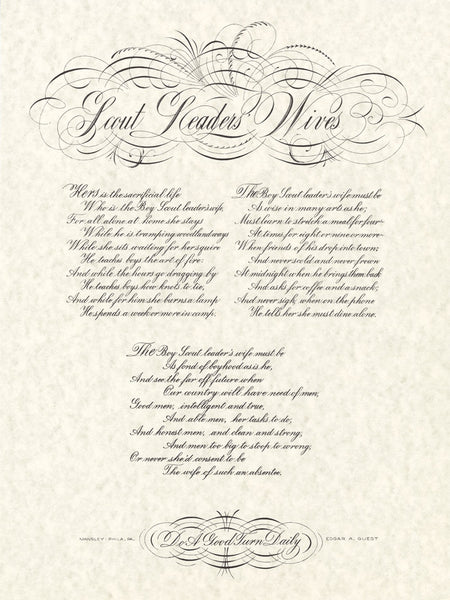 Scout Leaders' Wives
Hers is the sacrificial life
Who is the Boy Scout leader's wife,
For all alone at home she stays
While he is tramping woodland ways
While she sits waiting for her squire
He teaches boys the art of fire:
And while the hours go dragging by
He teaches boys how knots to tie,
And while for him she burns a lamp
He spends a week or more in camp.
The Boy Scout leader's wife must be
As wise in many arts as he;
Must learn to stretch a meal for four
At times for eight or nine or more
When friends of his drop into town;
And never scold and never frown
At midnight when he brings them back
And asks for coffee and a snack;
And never sigh, when on the phone
He tells her she must dine alone.
The Boy Scout leader's wife must be
As fond of boyhood as is he,
And see the far off future when
Our country will have need of men;
Good men, intelligent and true,
And able men, her tasks to do;
And honest men, and clean and strong,
And men too big to stoop to wrong;
Or never she'd consent to be
The wife of such an absentee.
Do A Good Turn Daily
EDGAR A. GUEST